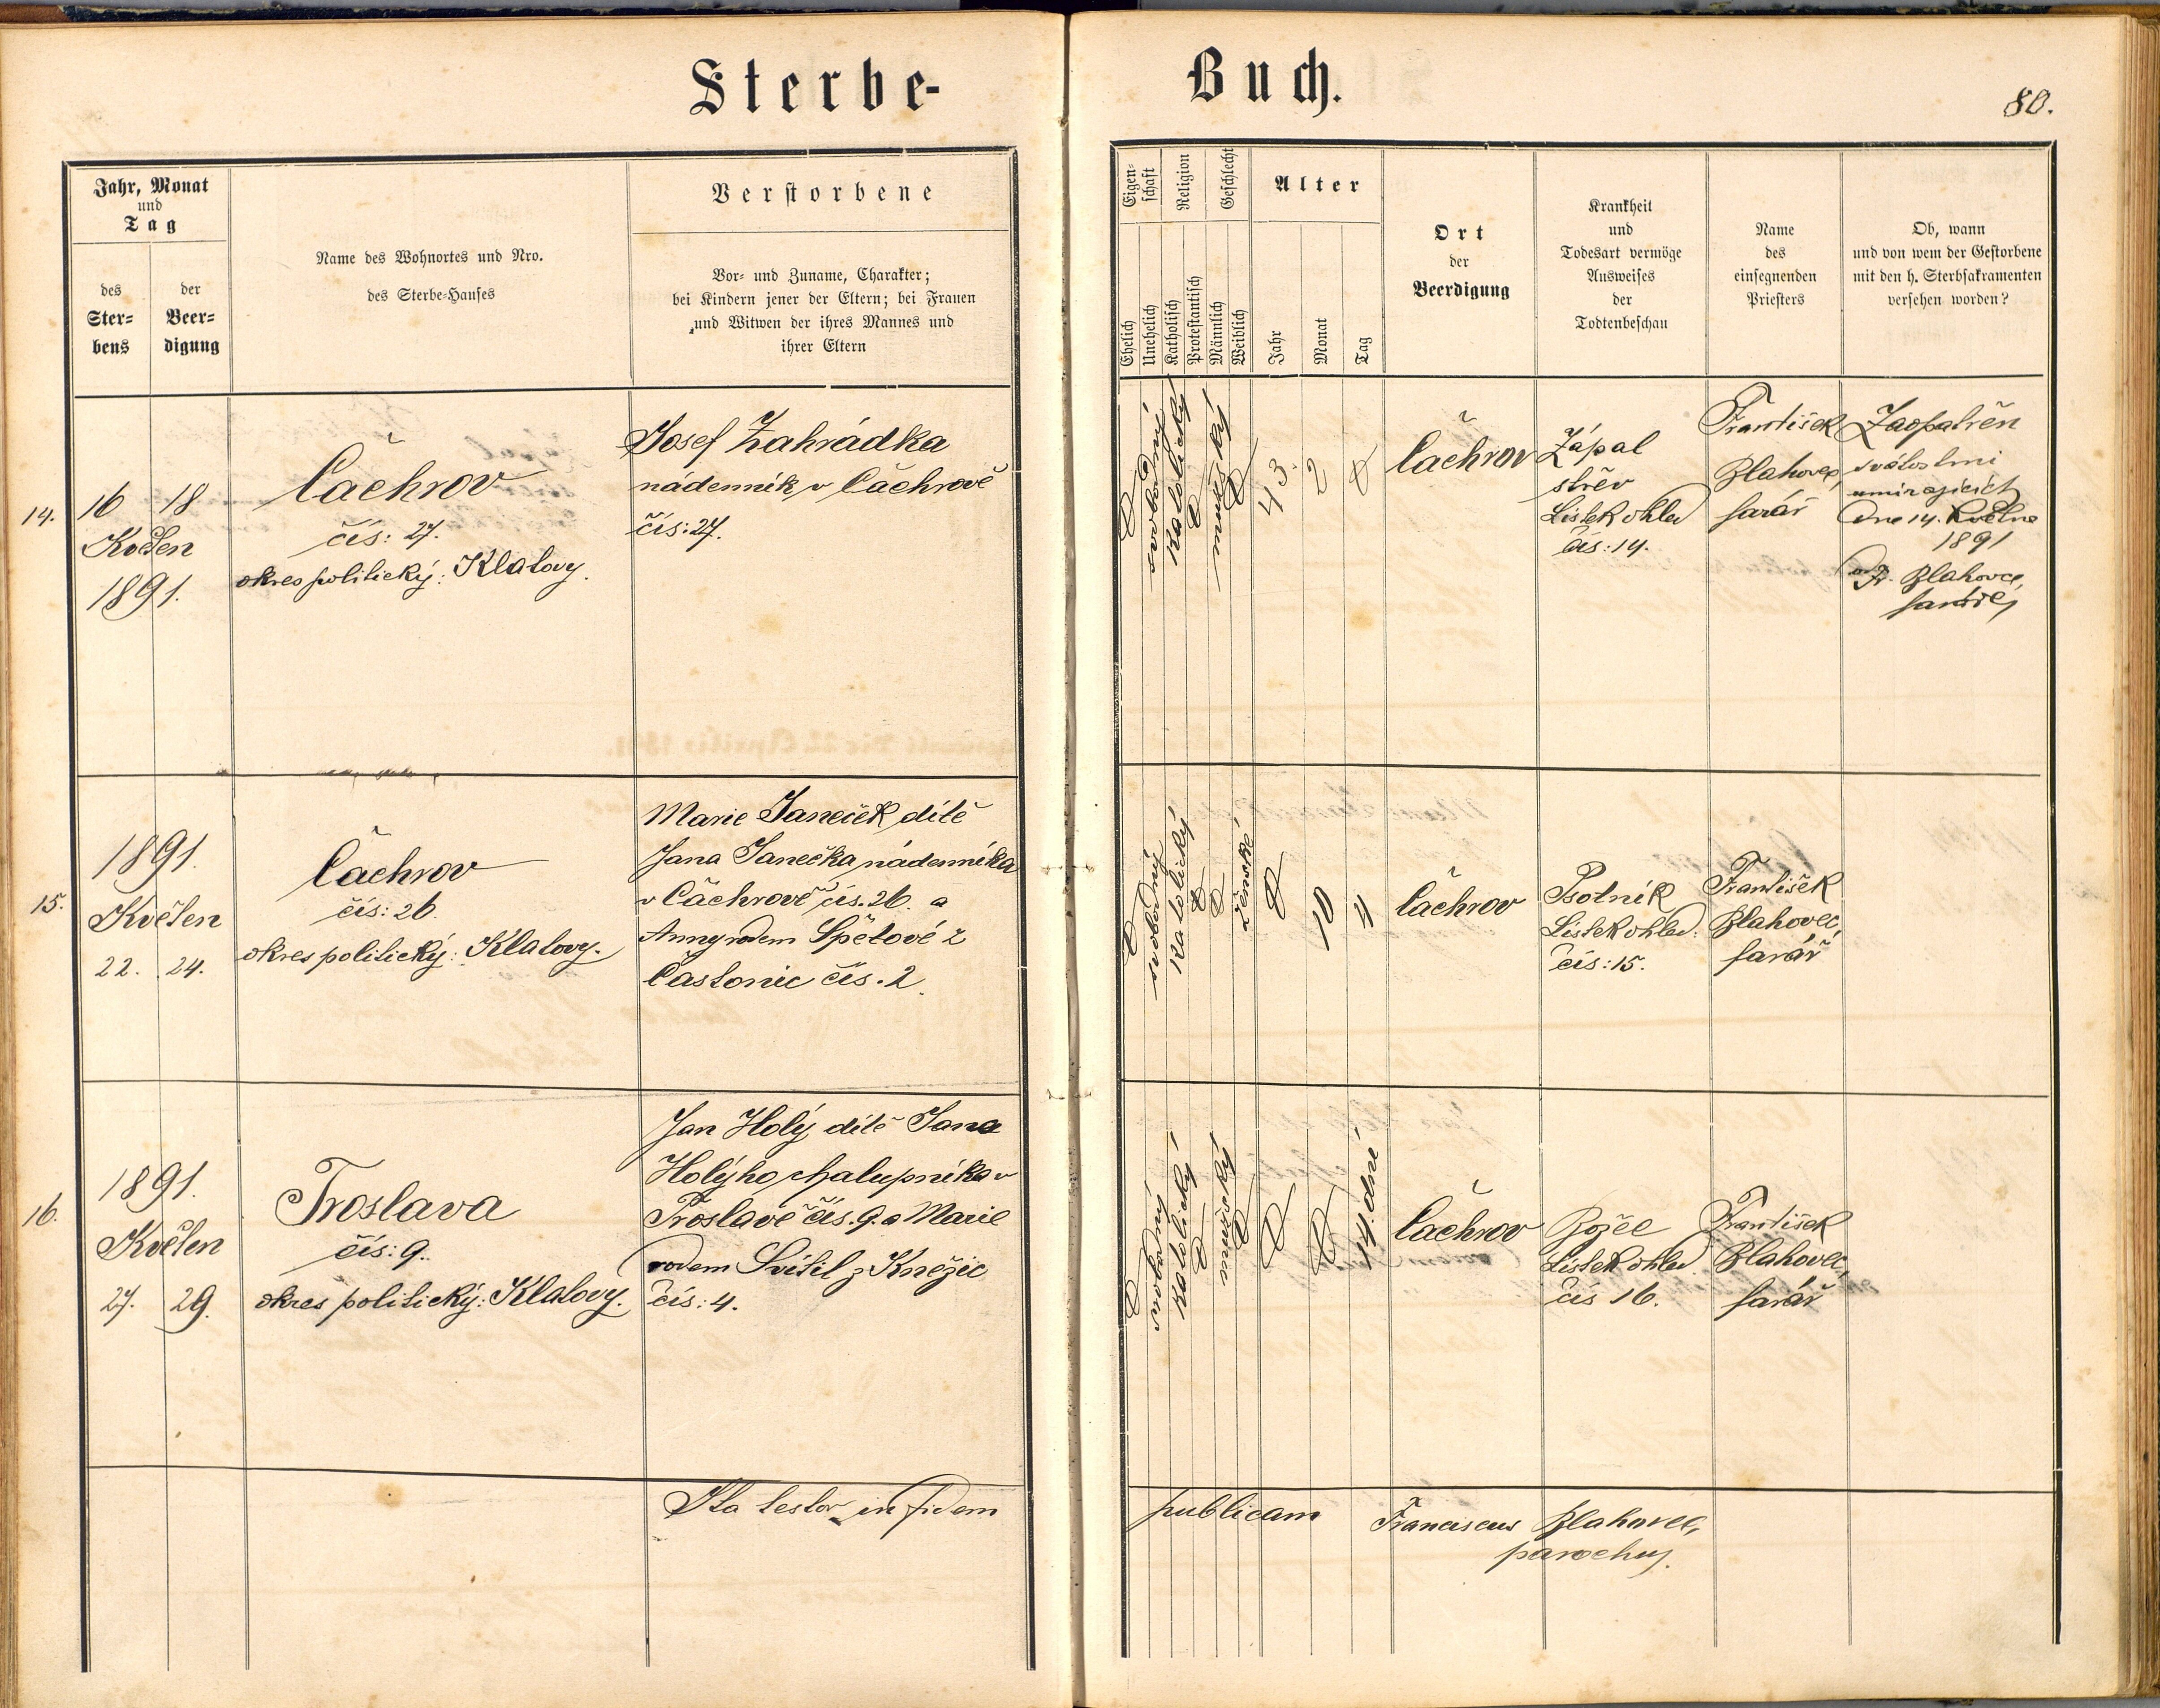 Sterbe-
Buch.
80.
Jahr, Monat
und
Tag
des
Ster-
bens
der
Beer-
digung
Name des Wohnortes und Nro.
des Sterbe-Hauses
Verstorbene
Vor- und Zuname, Charakter;
bei Kindern jener der Eltern; bei Frauen
und Witwen der ihres Mannes und
ihrer Eltern
Eigen-
schaft
Religion
Geschlecht
Alter
Ehelich
Unehelich
Katholisch
Protestantisch
Männlich
Weiblich
Jahr
Monat
Tag
Ort
der
Beerdigung
Krankheit
und
Todesart vermöge
Ausweises
der
Todtenbeschau
Name
des
einsegnenden
Priesters
Ob, wann
und von wem der Gestorbene
mit den h. Sterbsakramenten
versehen worden?
14.
16 18
Květen
1891.
Čachrov
čís: 27.
okres politický: Klatovy.
Josef Zahrádka
nádenník v Čachrově
čís: 27.
svobodný
katolický
mužský
43.
2
Čachrov
Zápal
střev
Lístek ohled
čís: 14.
František
Blahovec,
farář
Zaopatřen
svátostmi
umírajících
dne 14. Května
1891
od Fr. Blahovce,
faráře,
15.
1891.
Květen
22. 24.
Čachrov
čís: 26.
okres politický: Klatovy.
Marie Janeček dítě
Jana Janečka nádenníka
v Čachrově čís. 26. a
Anny rodem Špětové z
Častonic čís. 2.
svobodný
katolický
ženské
10
11
Čachrov
Psotník
Lístek ohled.
čís: 15.
František
Blahovec,
farář
16.
1891.
Květen
27. 29.
Troslava
čís: 9.
okres politický: Klatovy.
Jan Holý dítě Jana
Holýho chalupníka v
Troslavě čís. 9. a Marie
rodem Svítil z Kněžic
čís: 4.
svobodný
katolický
mužský
14. dní
Čachrov
Božec
Lístek ohled.
čís 16.
František
Blahovec,
farář
Ita testor in fidem
publicam Franciscus Blahovec,
parochus.